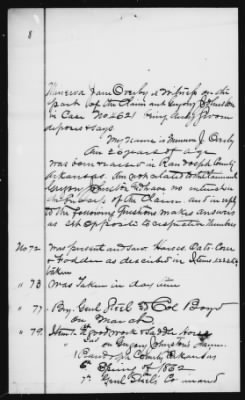 8
Minerva Jane Overby a witness on the
part of the Claimant Gregory Johnston
in Case No 2621 being duly sworn
deposes & says
My name is Minerva J. Overby
Am 26 years of age
was born & raised in Randolph County
Arkansas. Am not related to claimant
Johnston & have no interest in
the success of the Claim. And in reply
to the following questions makes answers
as set opposite to respective numbers
No 72 was present and saw Horses Oats Corn
& Fodder as described in Items 1 2 3 &
taken
" 73 was Taken in day time
" 77 By. Genl Steel & Col Boyd
on March
" 79 Item 1st good work & Saddle horse
2d on Johnston's farm.
Randolph County Arkansas
6th Spring of 1862
7th Genl Steel's Command